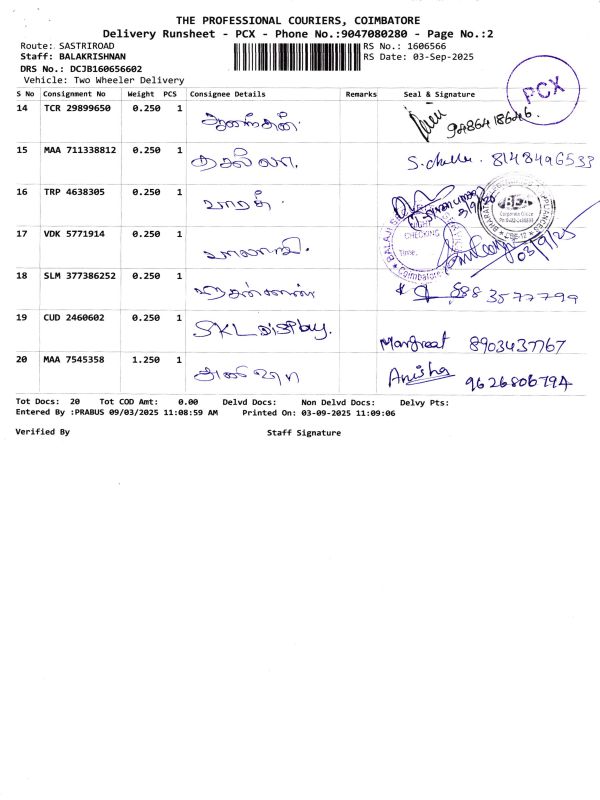 THE PROFESSIONAL COURIERS, COIMBATORE
Delivery Runsheet - PCX - Phone No.:9047080280 - Page No.:2
Route: SASTRIROAD
RS No.: 1606566
Staff: BALAKRISHNAN
RS Date: 03-Sep-2025
DRS No.: DCJB160656602
Vehicle: Two Wheeler Delivery
PCX
S No Consignment No Weight PCS Consignee Details Remarks Seal & Signature
14 TCR 29899650 0.250 1
15 MAA 711338812 0.250 1 8148496533
16 TRP 4638305 0.250 1 பாரதி
BEA
Corporate Office
17 VDK 5771914 0.250 1 பாலாஜி
CHECKING
Time:
Coimbatore
03/9/25
18 SLM 377386252 0.250 1
19 CUD 2460602 0.250 1 SKL Display. Margreat 8903437767
20 MAA 7545358 1.250 1 Anisha 9626806794
Tot Docs: 20 Tot COD Amt: 0.00 Delvd Docs: Non Delvd Docs: Delvy Pts:
Entered By :PRABUS 09/03/2025 11:08:59 AM Printed On: 03-09-2025 11:09:06
Verified By Staff Signature